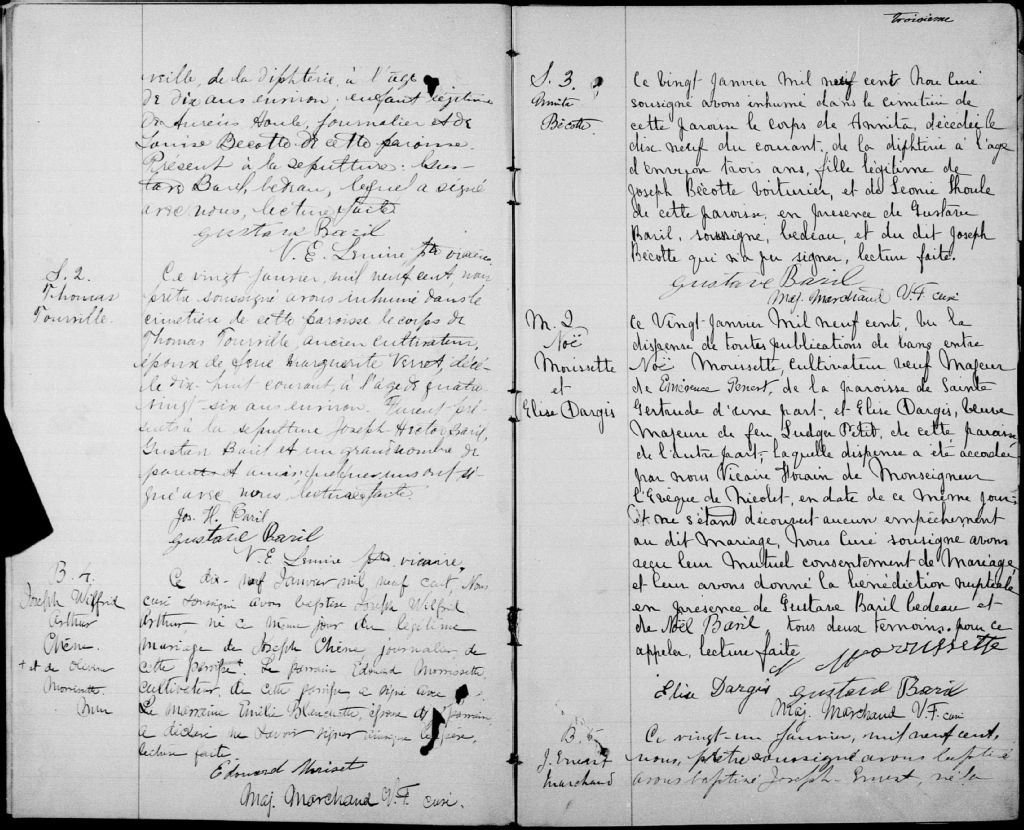 veille, de la diphtérie, à l'age
de dix ans environ, enfant légitime
de Aurèus Houle, journalier et de
Louise Becotte de cette paroisse.
Présent à la sépulture: Gus-
tave Baril, bedeau, lequel a signé
avec nous, lecture faite
Gustave Baril
N. E. Lemire ptre vicaire
S. 2.
Thomas
Tourville.
Ce vingt janvier, mil neuf cent, nous
prêtre soussigné avons inhumé dans le
cimetière de cette paroisse le corps de
Thomas Tourville, ancien cultivateur,
époux de feue Marguerite, décédé
le dix-huit courant, à l'age de quatre
vingt six ans environ. Furent pré-
sents à la sépulture Joseph Hector Baril,
Gustave Baril et un grand nombre de
parents et amis, quelques uns ont si-
gné avec nous, lecture faite.
Jos. H. Baril
Gustave Baril
N. E Lemire ptre vicaire,
B. 4.
Joseph Wilfrid
Arthur
Chène.
Ce dix-neuf Janvier mil neuf cent, Nous
curé soussigné avons baptisé Joseph Wilfrid
Arthur, né ce même jour du légitime
mariage de Joseph Chène journalier, de
cette paroisse. Le parrain Edouard Morrissette,
cultivateur, de cette paroisse a signé avec
La marraine Emélie Blanchette, épouse du parrain,
a déclaré ne savoir signer
lecture faite.
Edouard Moriset
Maj. Marchand V. F. curé.
Troisième
S. 3.
Annita
Bécotte.
Ce vingt Janvier Mil neuf cent Nou Curé
soussigné avons inhumé dans le cimetière de
cette Paroisse le corps de Annita, décédée le
dix neuf du courant, de la diphterie à l'age
d'environ trois ans, fille légitime de
Joseph Bécotte voiturier, et de Léonie Houle
de cette paroisse, en presence de Gustave
Baril, soussigné, bedeau, et du dit Joseph
Bécotte qui n'a pu signer, lecture faite.
Gustave Baril
Maj. Marchand V. F. curé
M. 2
Noë
Morissette
et
Elise Dargis
Ce Vingt Janvier Mil neuf cent, vu la
dispense de toutes publications de bans entre
Noë Morissette, cultivateur veuf Majeur
de Emérence, de la paroisse de Sainte
Gertrude d'une part, et Elise Dargis, veuve
Majeure de feu Ludger Petit, de cette paroisse
de l'autre part, laquelle dispense a été accordée
par nous Vicaire Forain de Monseigneur
l'Evêque de Nicolet, en date de ce même jour
et ne s'étant découvert aucun empêchement
au dit Mariage, Nous Curé soussigné avons
reçu leur Mutuel consentement de Mariage
et leur avons donné la bénédiction nuptiale
en présence de Gustave Baril bedeau et
de Noël Baril tous deux temoins. pour ce
appeler, lecture faite
N Morissette
Elise Dargis Gustave Baril
Maj. Marchand V. F. curé
B. 5
J. Ernest
Marchand
Ce vingt-un Janvier, mil neuf cent,
nous, prêtre soussigné avons baptisé
avons baptisé Joseph-Ernest, né la